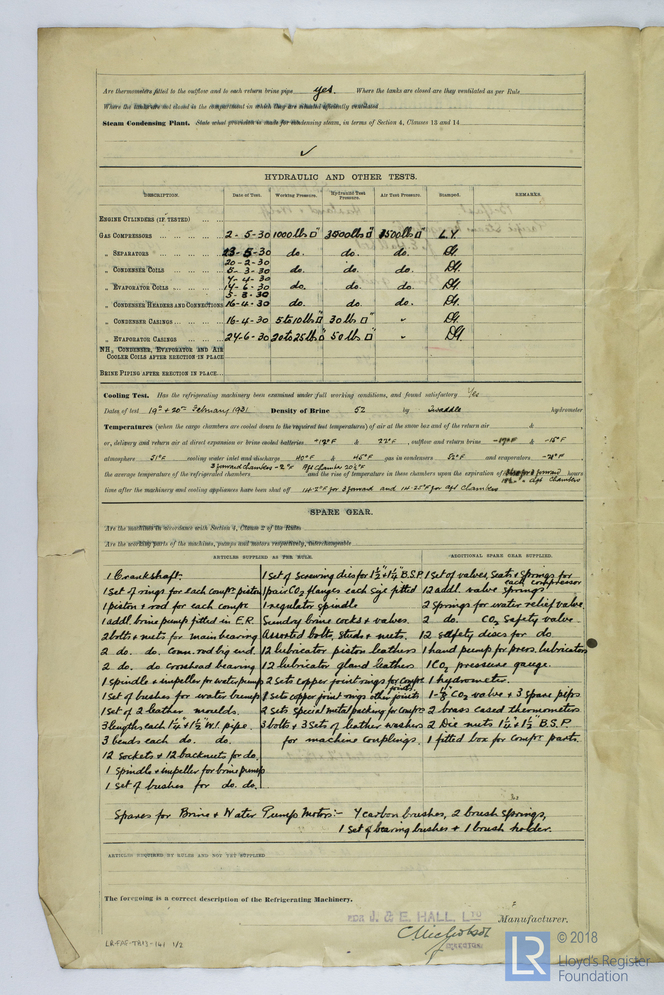 Are thermometers fitted to the outflow and to each return brine pipe yes. Where the tanks are closed are they ventilated as per Rule
Where the tanks are not closed is the compartment in which they are situated efficiently ventilated
Steam Condensing Plant. State what provision is made for condensing steam, in terms of Section 4, Clauses 13 and 14
✓
HYDRAULIC AND OTHER TESTS.
DESCRIPTION. Date of Test. Working Pressure. Hydraulic Test Pressure. Air Test Pressure. Stamped. REMARKS.
ENGINE CYLINDERS (IF TESTED)
GAS COMPRESSORS 2-5-30 1000 lbs □" 3000 lbs □" 1500 lbs □" L.Y.
„ SEPARATORS 23-5-30 do. do. do.
20-2-30
„ CONDENSER COILS 5-3-30 do. do. do.
7-4-30
„ EVAPORATOR COILS 14-6-30 do. do. do.
5-3-30
„ CONDENSER HEADERS AND CONNECTIONS 16-4-30 do. do. do.
„ CONDENSER CASINGS 16-4-30 5 to 10 lbs □" 30 lbs □" "
„ EVAPORATOR CASINGS 24-6-30 20 to 25 lbs □" 50 lbs □" "
NH3 CONDENSER, EVAPORATOR AND AIR COOLER COILS AFTER ERECTION IN PLACE
BRINE PIPING AFTER ERECTION IN PLACE
Cooling Test. Has the refrigerating machinery been examined under full working conditions, and found satisfactory Yes
Dates of test 19th + 20th February 1931 Density of Brine 52 by Twaddle hydrometer
Temperatures (when the cargo chambers are cooled down to the required test temperatures) of air at the snow box and of the return air &
or, delivery and return air at direct expansion or brine cooled batteries & 22°F, outflow and return brine & -15°F
atmosphere 51°F cooling water inlet and discharge 40°F & 45°F gas in condensers and evaporators
3 forward chambers -2°F Aft Chamber 20½°F
the average temperature of the refrigerated chambers and the rise of temperature in these chambers upon the expiration of hours
time after the machinery and cooling appliances have been shut off 14.2°F for 3 forward and 14.25°F for aft Chambers
SPARE GEAR.
Are the machines in accordance with Section 4, Clause 2 of the Rules
Are the working parts of the machines, pumps and motors respectively, interchangeable
ARTICLES SUPPLIED AS PER RULE. ADDITIONAL SPARE GEAR SUPPLIED.
1 Crankshaft. 1 set of screwing dies for 1½" & 1¼" B.S.P. 1 set of valves, seats & springs for each compressor
1 set of rings for each compr. piston 1 pair CO2 flanges each size fitted 12 addl. valve springs.
1 piston & rod for each compr. 1 regulator spindle 2 springs for water relief valve.
1 addl. brine pump fitted in E.R. Sundry brine cocks & valves. 2 do. CO2 safety valve.
2 bolts & nuts for main bearing Assorted bolts, studs & nuts. 12 safety discs for do
2 do. do. Conn. rod big end. 12 lubricator piston leathers 1 hand pump for press. lubricators
2 do. do Crosshead bearing 12 lubricator gland leathers 1 CO2 pressure gauge.
1 spindle & impeller for water pump 2 sets copper joint rings for compr joints 1 hydrometer.
1 set of bushes for water pump 8 sets copper joint rings other joints 1-⅛" CO2 valve & 3 spare pips
1 set of 2 leather moulds. 2 sets special metal packing for compr. 2 brass cased thermometers
3 lengths each 1¼" & 1½" W.I. pipe. 3 bolts & 3 sets of leather washers 2 Die nuts 1¼" & 1½" B.S.P.
3 bends each do. do. for machine couplings. 1 fitted box for compr. parts.
12 sockets & 12 backnuts for do.
1 spindle & impeller for brine pump
1 set of bushes for do. do.
Spares for Brine & Water Pumps Motors:- 4 carbon brushes, 2 brush springs,
1 set of bearing bushes & 1 brush holder.
ARTICLES REQUIRED BY RULES AND NOT YET SUPPLIED
The foregoing is a correct description of the Refrigerating Machinery.
FOR J. & E. HALL, LTD Manufacturer.
DIRECTOR.
LR-FAF-TR13-141 1/2
LR © 2018
Lloyd's Register
Foundation